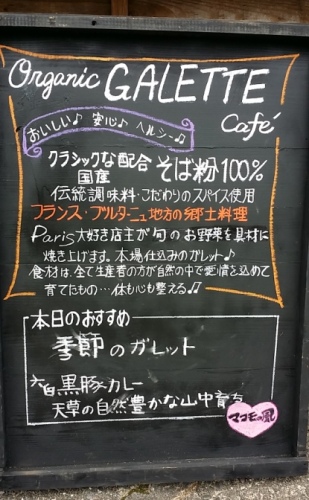 Organic GALETTE
Café
おいしい♪ 安心♪ ヘルシ〜♫
クラシックな配合 そば粉100%
国産
伝統調味料・こだわりのスパイス使用
フランス・ブルターニュ地方の郷土料理
Paris大好き店主が旬のお野菜を具材に
焼き上げます。本場仕込みのガレット♪
食材は、全て生産者の方が自然の中で愛情を込めて
育てたもの…体も心も整える♫
本日のおすすめ
季節のガレット
六白黒豚カレー
天草の自然豊かな山中育ち
マコモの風